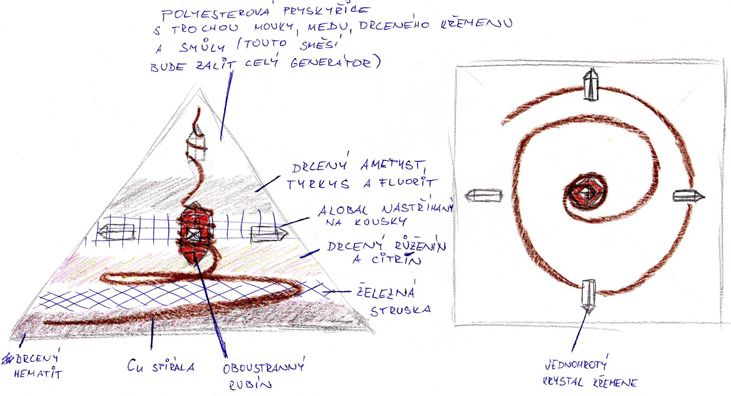 POLYESTEROVÁ PRYSKYŘICE
S TROCHOU MOUKY, MEDU, DRCENÉHO KŘEMENU
A SMŮLY (TOUTO SMĚSÍ
BUDE ZALIT CELÝ GENERÁTOR)
DRCENÝ AMETYST,
TYRKYS A FLUORIT
ALOBAL NASTŘÍHANÝ
NA KOUSKY
DRCENÝ RŮŽENÍN
A CITRÍN
ŽELEZNÁ
STRUSKA
DRCENÝ
HEMATIT
Cu SPIRÁLA
OBOUSTRANNÝ
RUBÍN
JEDNOHROTÝ
KRYSTAL KŘEMENE